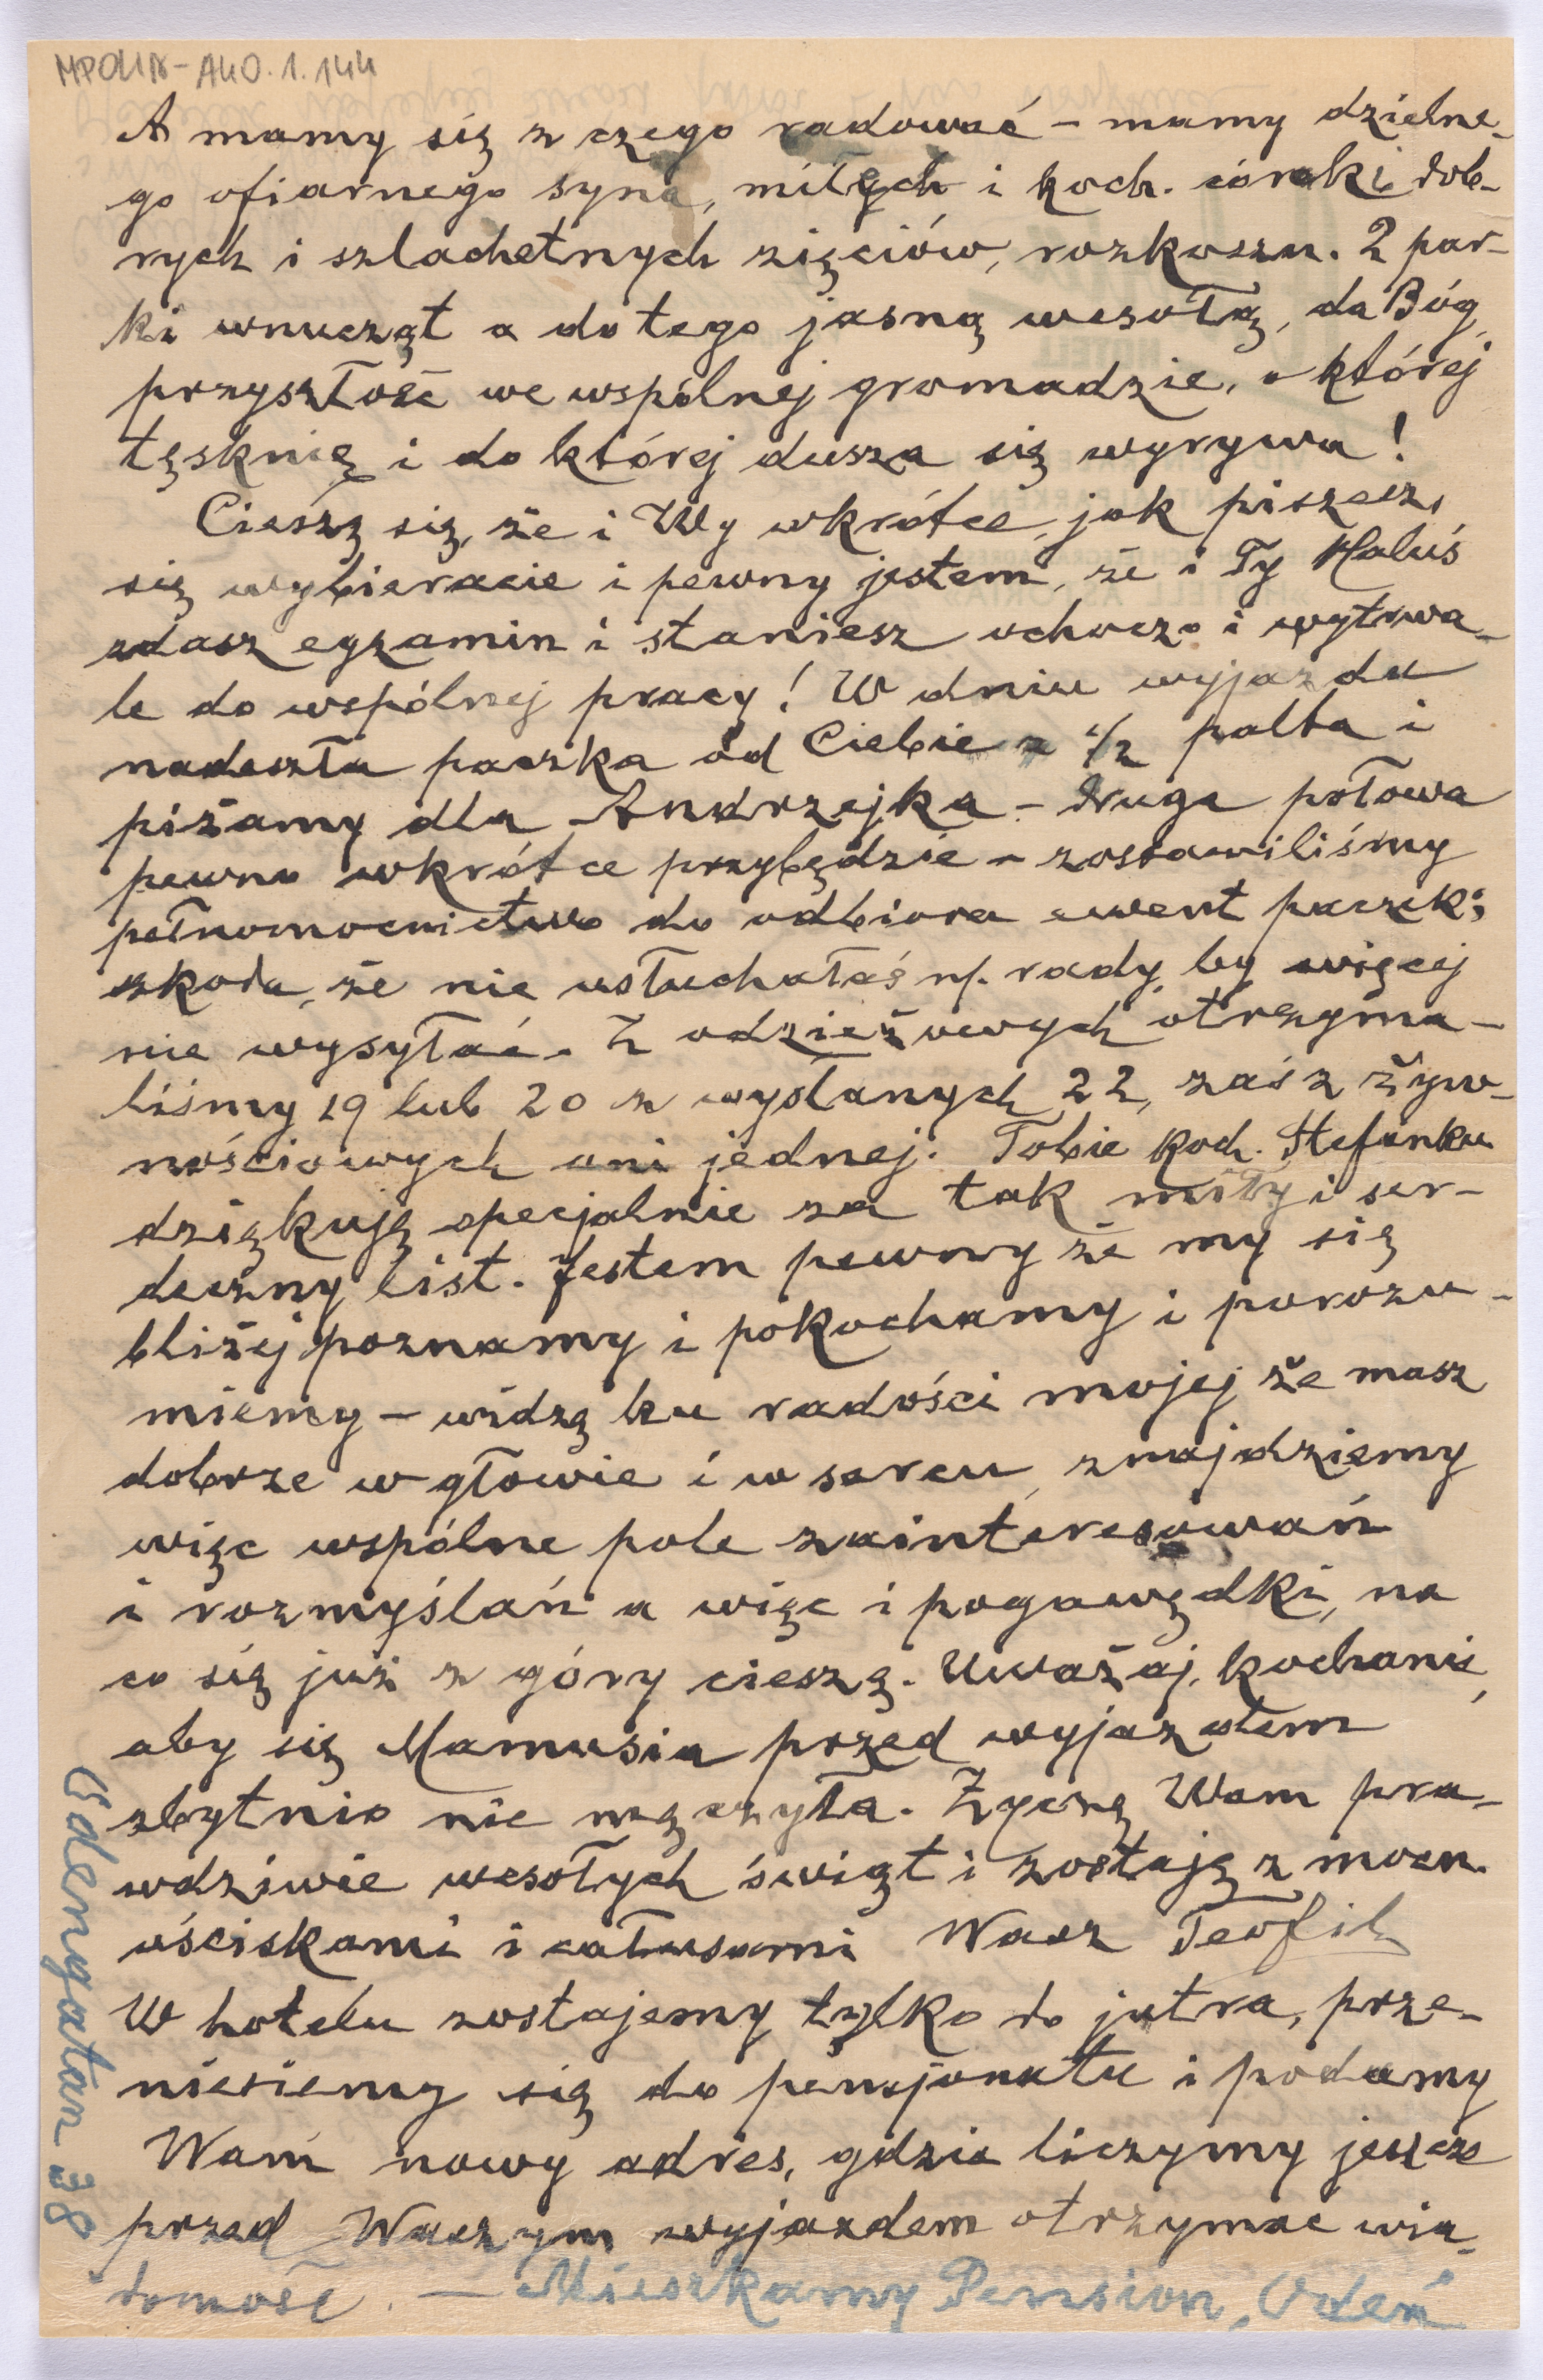 MPOLIN-A40.1.144
A mamy się z czego radować – mamy dzielne-
go ofiarnego syna, miłych i koch. córeki dob-
rych i szlachetnych zięciów, rozkoszn. 2 par-
ki wnucząt a do tego jasną wesołą, da Bóg,
przyszłość we wspólnej gromadzie, o której
tęsknię i do której dusza się wyrywa!
Cieszę się, że i Wy wkrótce, jak piszecz,
się wybieracie i pewny jestem, że i Ty Haluś
zdasz egzamin i staniesz ochoczo i wytrwa-
le do wspólnej pracy! W dniu wyjazdu
nadeszła paczka od Ciebie z 1/2 palta i
piżamy dla Andrzejka – druga połowa
pewno wkrótce przybędzie – zostawiliśmy
pełnomocnictwo do odbioru ewent paczek;
szkoda, że nie usłuchałaś n/. rady, by więcej
nie wysyłać. Z odzieżowych otrzyma-
liśmy 19 lub 20 z wysłanych 22, zaś z żyw-
nościowych ani jednej. Tobie koch. Stefanku
dziękuję specjalnie za tak miły i ser-
deczny list. Jestem pewny że my się
bliżej poznamy i pokochamy i porozu-
miemy – widzę ku radości mojej że masz
dobrze w głowie i w sercu, znajdziemy
więc wspólne pole zainteresowań
i rozmyślań a więc i pogawędki, na
co się już z góry cieszę. Uważaj, kochanie,
aby się Mamusia przed wyjazdem
zbytnio nie męczyła. Życzę Wam pra-
wdziwie wesołych świąt i zostaję z mocn.
uściskami i całusami Wasz Teofil
W hotelu zostajemy tylko do jutra, prze-
niesiemy się do pensjonatu i podamy
Wam nowy adres, gdzie liczymy jeszcze
przed Waszym wyjazdem otrzymac wia-
domość. – Mieszkamy Pension „Oden"
Odengatan 38